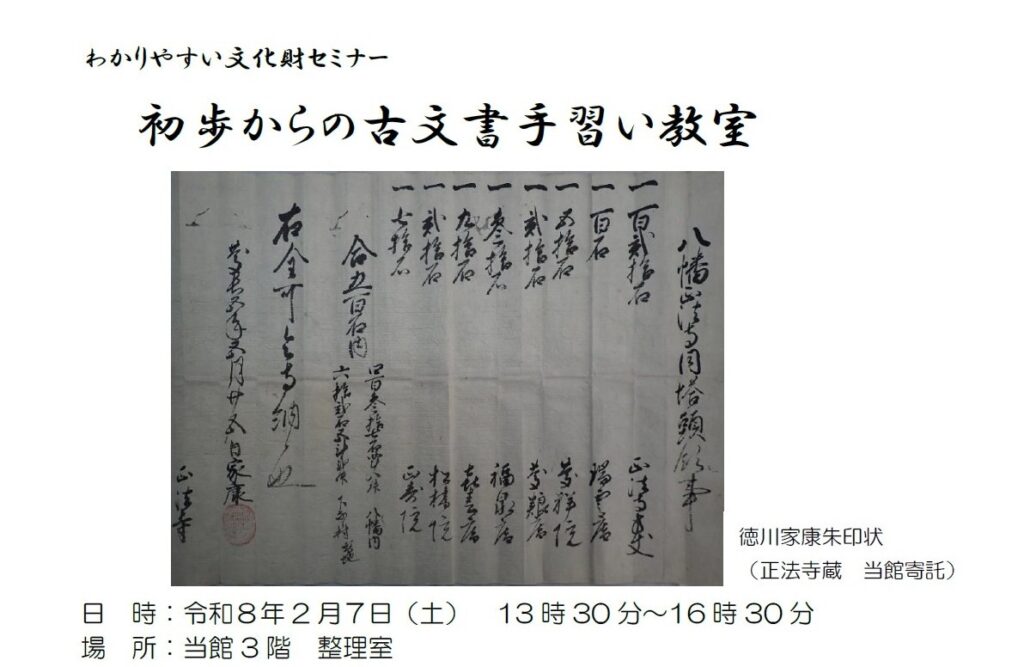 わかりやすい文化財セミナー
初歩からの古文書手習い教室
八幡正法寺同塔頭領事
一百弐拾石 正法寺
一百石 瑞雲庵
一五拾石 慶祥院
一弐拾石
一参拾石 福泉庵
一九拾石 喜春庵
一弐拾石 松林院
一七拾石 正寿院
合五百石内
八幡内
六拾弐石 下奈良村
右全可令寺納也
慶長五年五月廿五日家康
正法寺
徳川家康朱印状
(正法寺蔵 当館寄託)
日 時:令和8年2月7日(土) 13時30分~16時30分
場 所:当館3階 整理室